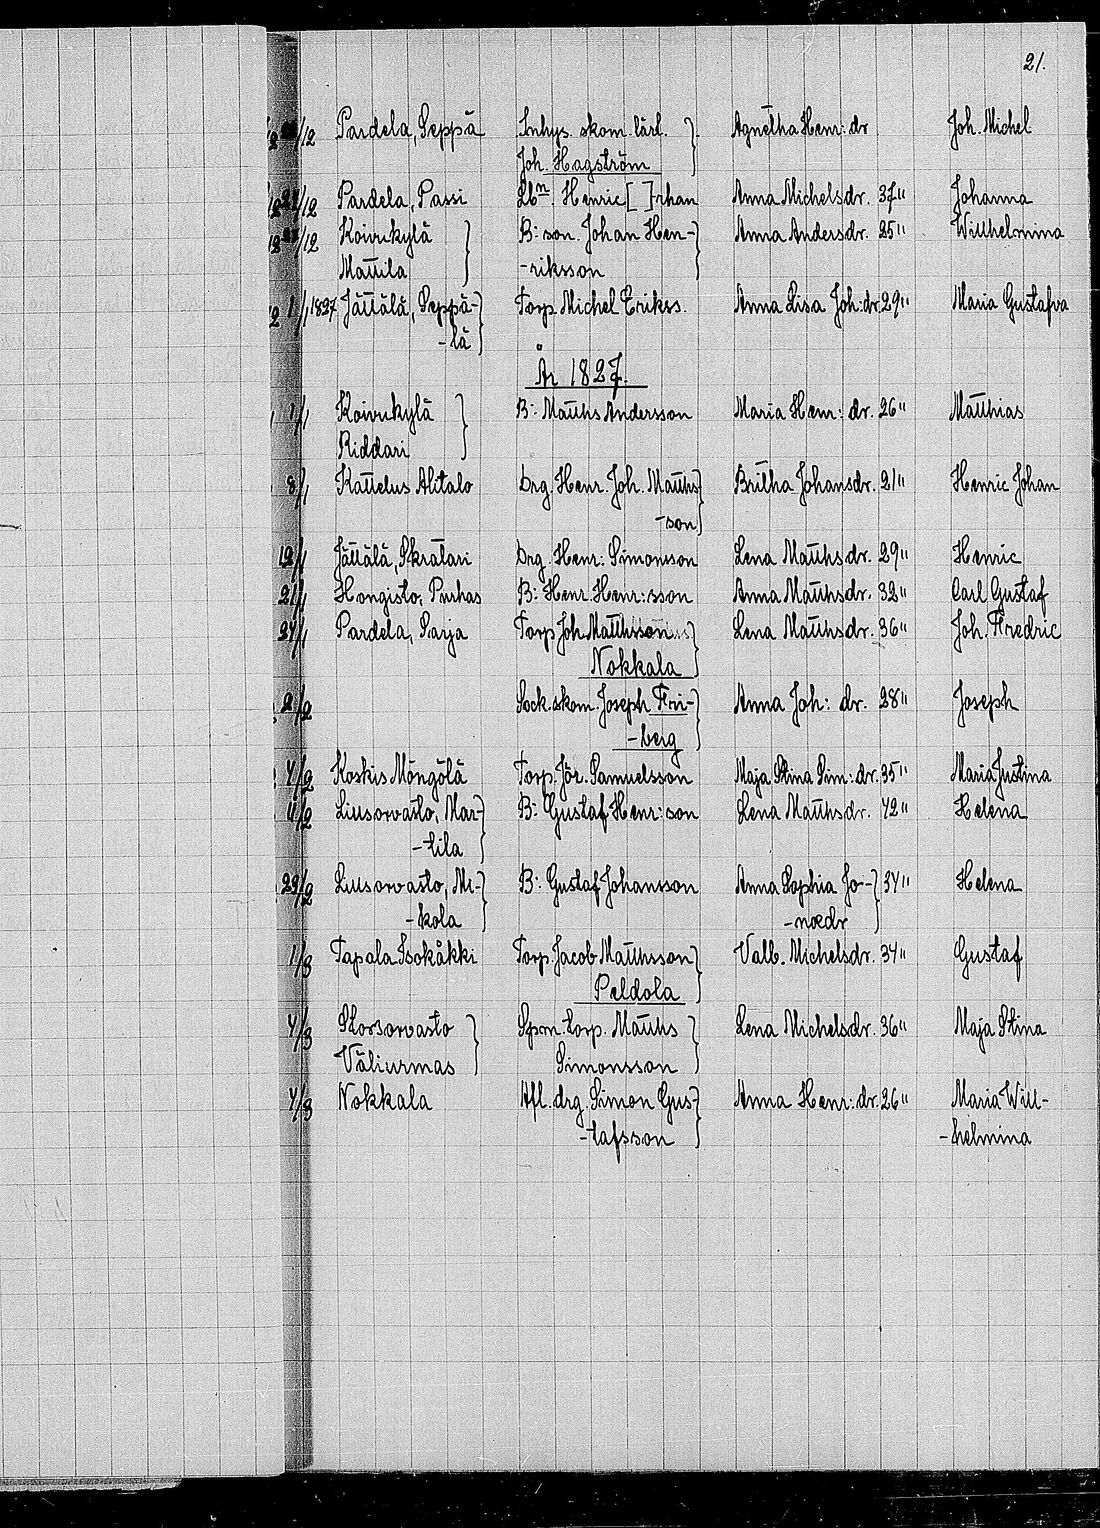 21.
/12 Pardela, Seppä Inhys. skom. lärl. Agnetha Henr: dr Joh. Michel
Joh. Hagström
/12 Pardela, Passi Lbm. Henric [ ]rhan Anna Michelsdr. 37" Johanna
/12 Koivukylä B: son. Johan Hen- Anna Andersdr. 25" Willhelmina
Mattila -riksson
1/1 1827 Jättälä, Seppä- Torp. Michel Erikss. Anna Lisa Joh:dr. 29" Maria Gustafva
-lä
År 1827.
1/1 Koivukylä B: Matths Andersson Maria Henr: dr. 26" Matthias
Riddari
8/1 Kattelus Alitalo Drg. Henr. Joh. Matths Britha Johansdr. 21" Henric Johan
-son
12/1 Jättälä, Skrätari Drg. Henr: Simonsson Lena Matthsdr. 29" Henric
21/1 Hongisto, Purhas B: Henr. Henr:sson Anna Matthsdr. 32" Carl Gustaf
27/1 Pardela, Sarja Torp Joh. Matthsson Lena Matthsdr. 36" Joh. Fredric
Nokkala
2/2 Sock.skom. Joseph Fri- Anna Joh: dr. 28" Joseph
-berg
4/2 Koskis Möngölä Torp. Jör. Samuelsson Maja Stina Sim: dr. 35" Maria Justina
4/2 Liusorvasto, Mar- B: Gustaf Henr: son Lena Matthsdr. 42" Helena
-tila
/2 Liusorvasto, Mi- B: Gustaf Johansson Anna Sophia Jo- 34" Helena
-kola -nædr
1/3 Tapala Isokåkki Torp. Jacob Matthsson Valb. Michelsdr. 34" Gustaf
Peldola
4/3 Storsorvasto Spm. torp. Matths Lena Michelsdr. 36" Maja Stina
Väliurmas Simonsson
4/3 Nokkala Afl. drg. Simon Gus- Anna Henr: dr. 26" Maria Will-
-tafsson -helmina